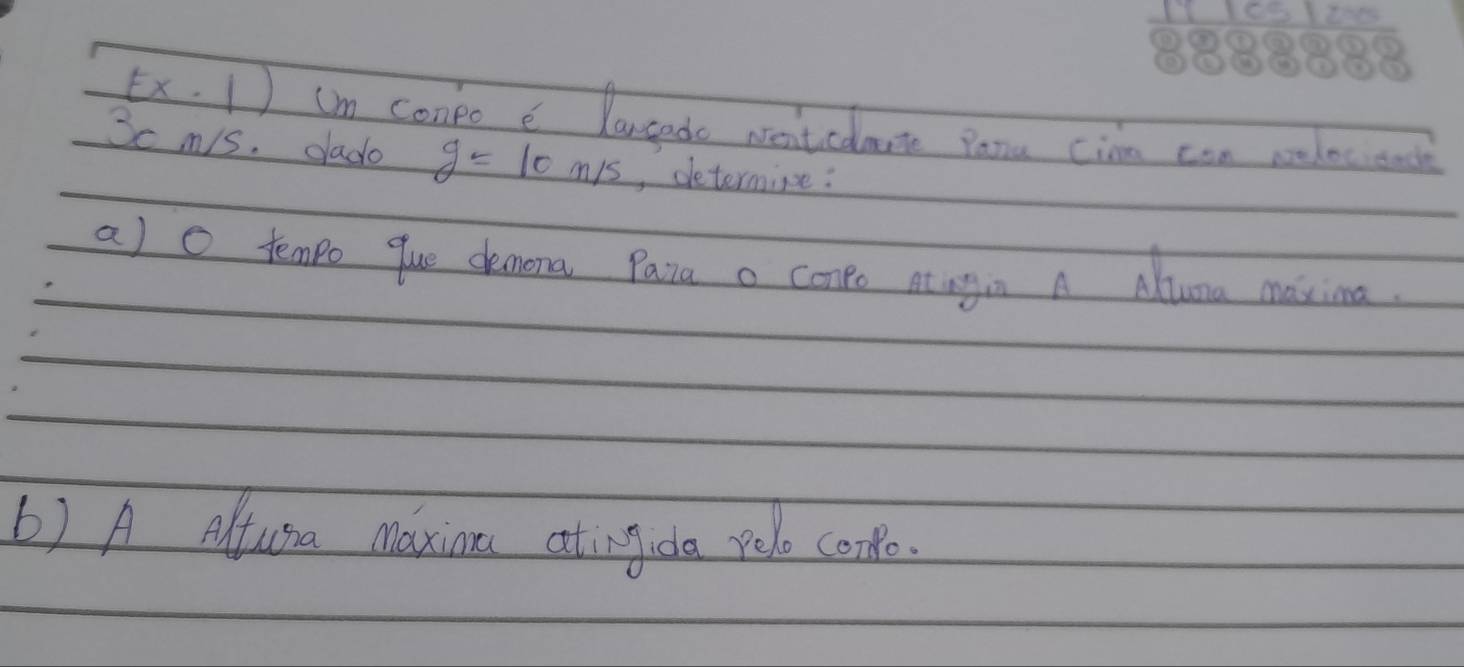 Ex. 1) Um corpo é lançado verticalmente para cima com velocidade
30 m/s. dado g= 10 m/s, determine:
a) O tempo que demora Para o corpo Atingir A Altura máxima.
b) A Altura máxima atingida pelo corpo.